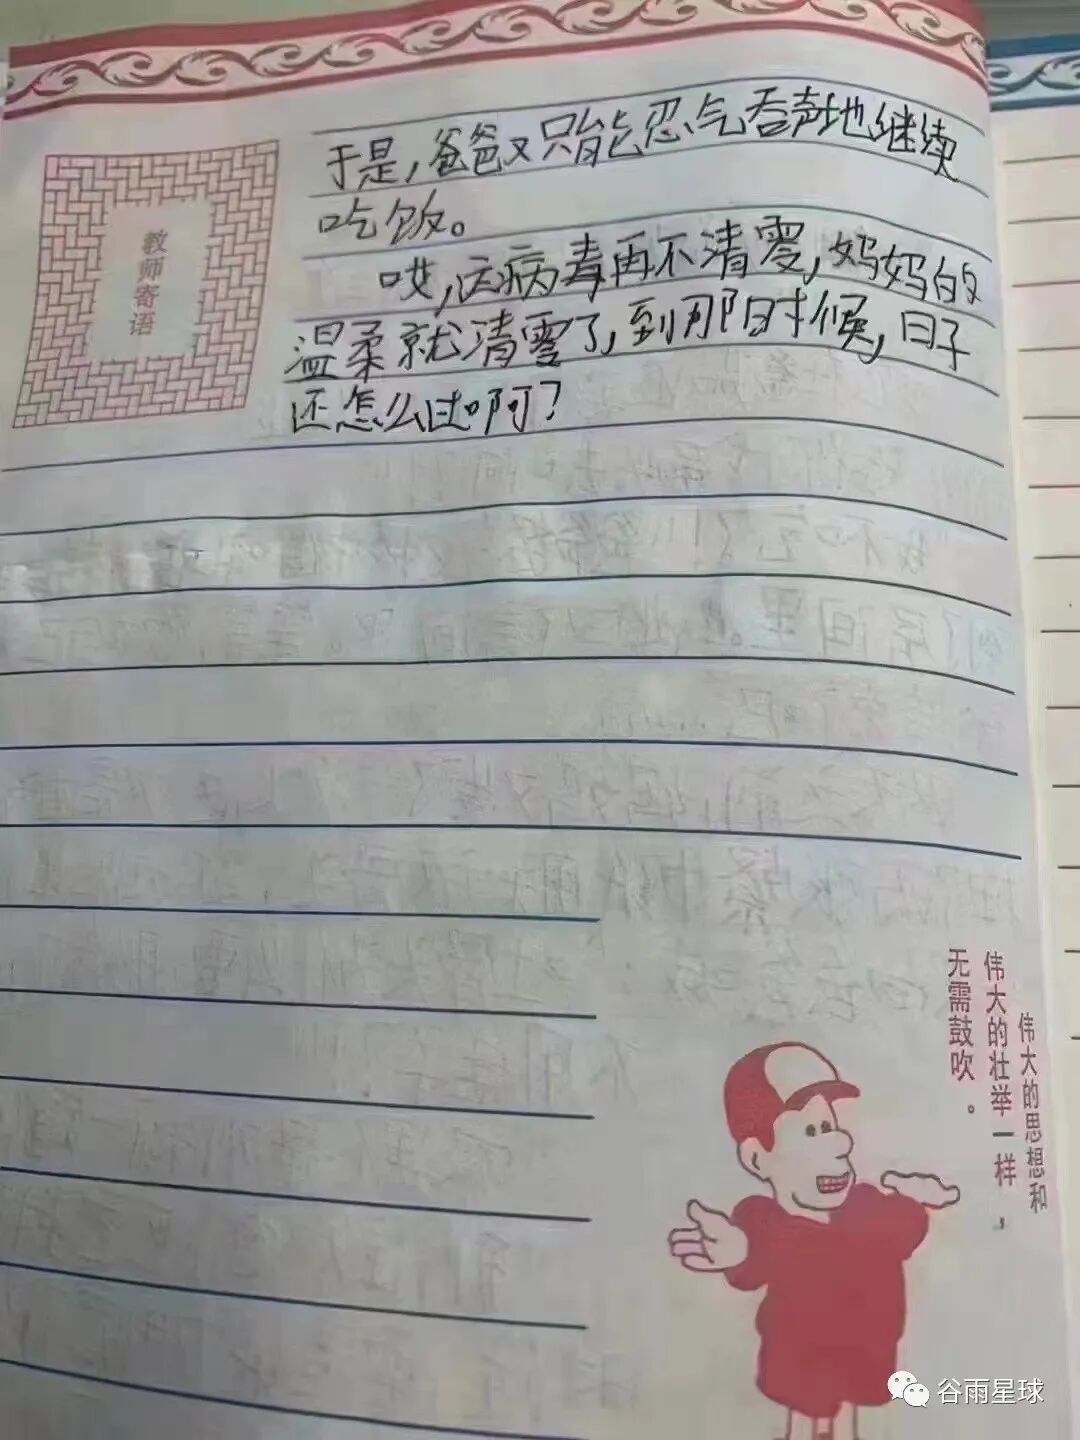 于是，爸爸又只能忍气吞声地继续
吃饭。
哎，这病毒再不清零，妈妈的
温柔就清零了，到那时候，日子
还怎么过啊？
教师寄语
伟大的思想和
伟大的壮举一样，
无需鼓吹。
谷雨星球